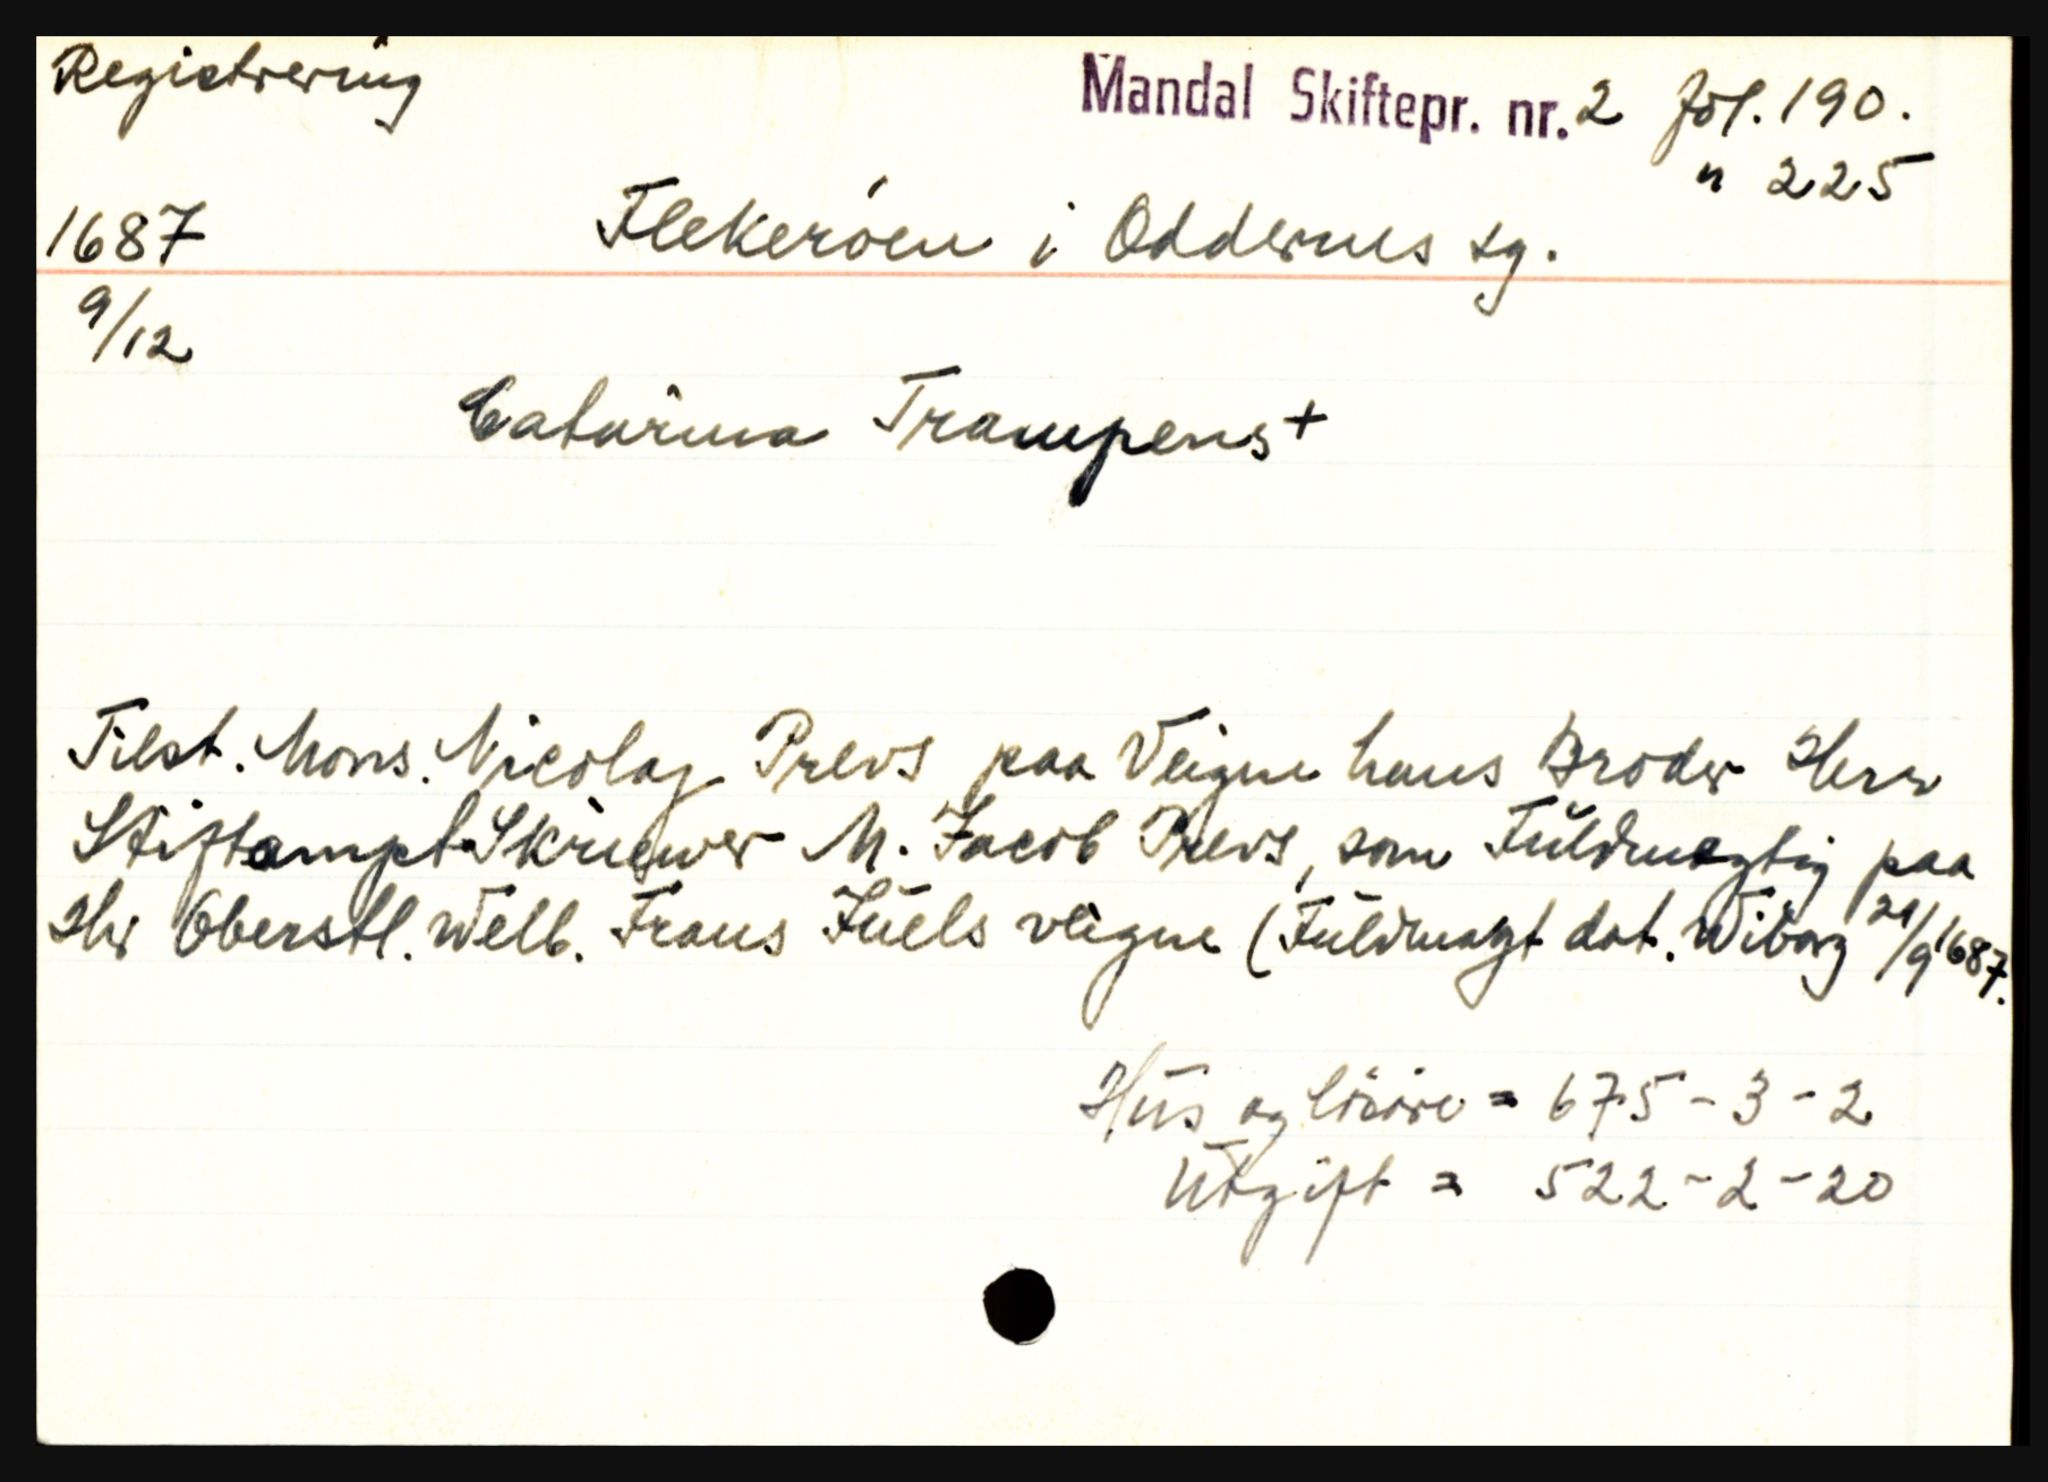 Registrering
Mandal Skiftepr. nr. 2 fol. 190.
" 225
1687 Flekeröen i Oddernes sg.
9/12
Catarina Trampens +
Tilst. Mons. Nicolaj Prevs paa Veigne hans Broder Herr
Stiftampt Skriewer M. Jacob Prevs, som Fuldmegtig paa
Hr Oberstl. Welb. Frans Juels veigne (Fuldmagt dat. Wiborg 21/9 1687.
Hus og lösöre = 675 - 3 - 2
Utgift = 522 - 2 - 20